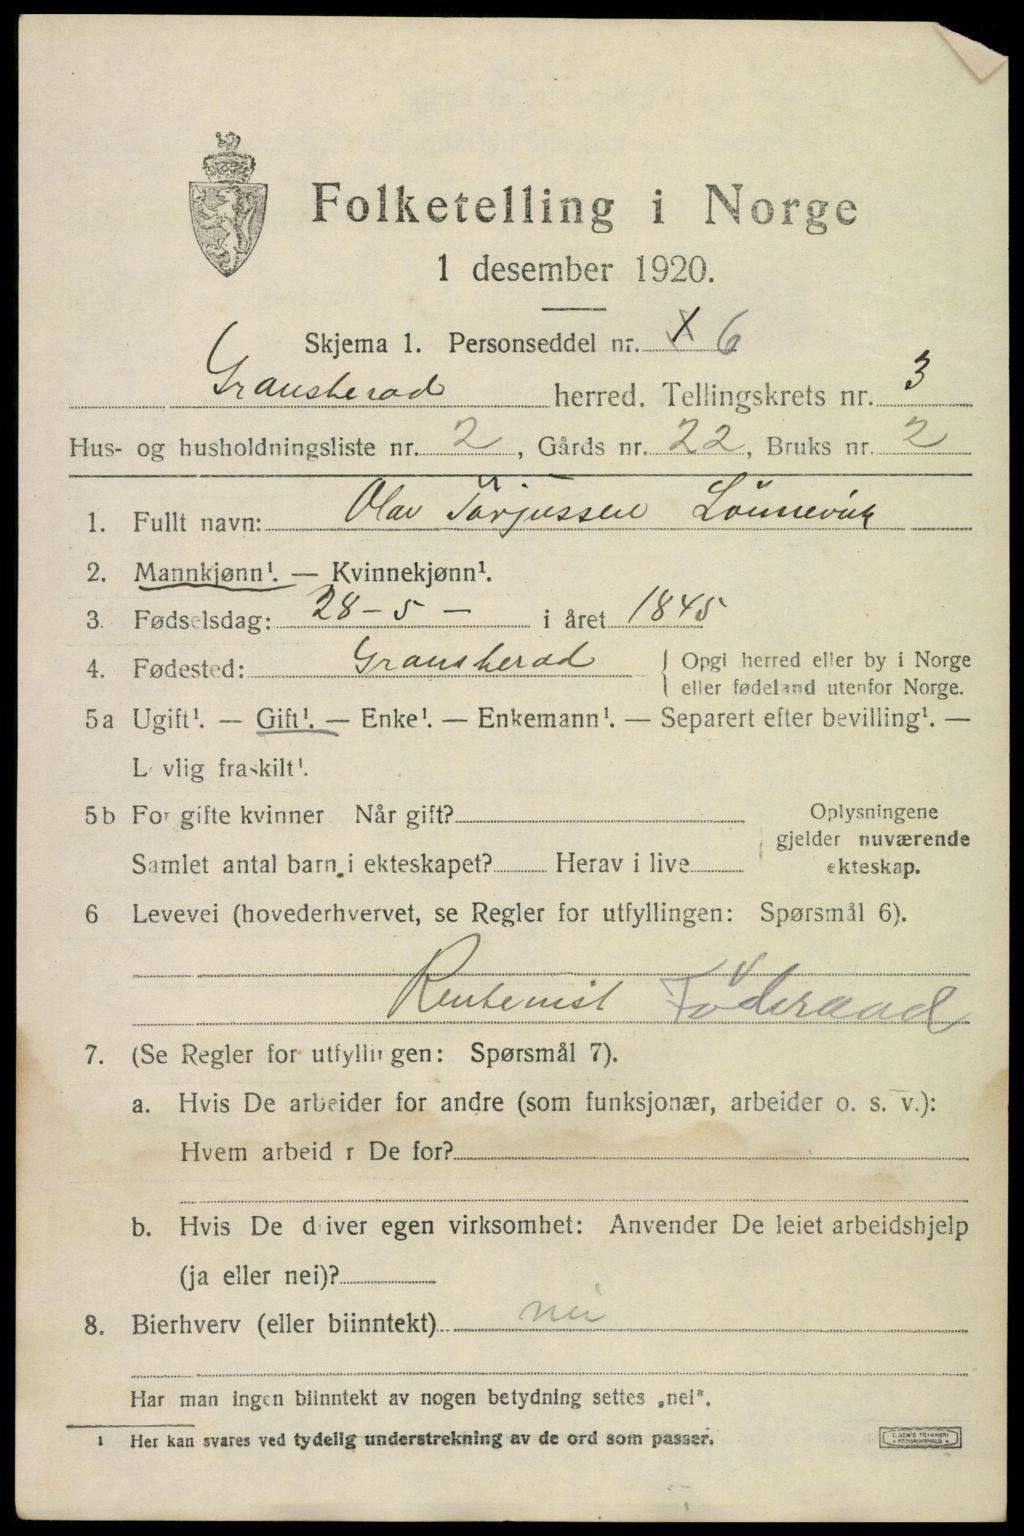 Folketelling i Norge
1 desember 1920.
Skjema 1. Personseddel nr. X 6
Gransherad herred. Tellingskrets nr. 3
Hus- og husholdningsliste nr. 2, Gårds nr. 22, Bruks nr. 2
1. Fullt navn: Olav Torjussen Lönnevik
2. Mannkjønn¹. — Kvinnekjønn¹.
3. Fødselsdag: 28-5- i året 1845
4. Fødested: Gransherad { Opgi herred eller by i Norge
eller fødeland utenfor Norge.
5a Ugift¹. — Gift¹. — Enke¹. — Enkemann¹. — Separert efter bevilling¹. —
Lovlig fraskilt¹.
5b For gifte kvinner Når gift? Oplysningene
gjelder nuværende
Samlet antal barn i ekteskapet? Herav i live ekteskap.
6 Levevei (hovederhvervet, se Regler for utfyllingen: Spørsmål 6).
Rentenist Föderaad
7. (Se Regler for utfyllingen: Spørsmål 7).
a. Hvis De arbeider for andre (som funksjonær, arbeider o. s. v.):
Hvem arbeider De for?
b. Hvis De driver egen virksomhet: Anvender De leiet arbeidshjelp
(ja eller nei)?
8. Bierhverv (eller biinntekt) nei
Har man ingen biinntekt av nogen betydning settes „nei".
1 Her kan svares ved tydelig understrekning av de ord som passer.